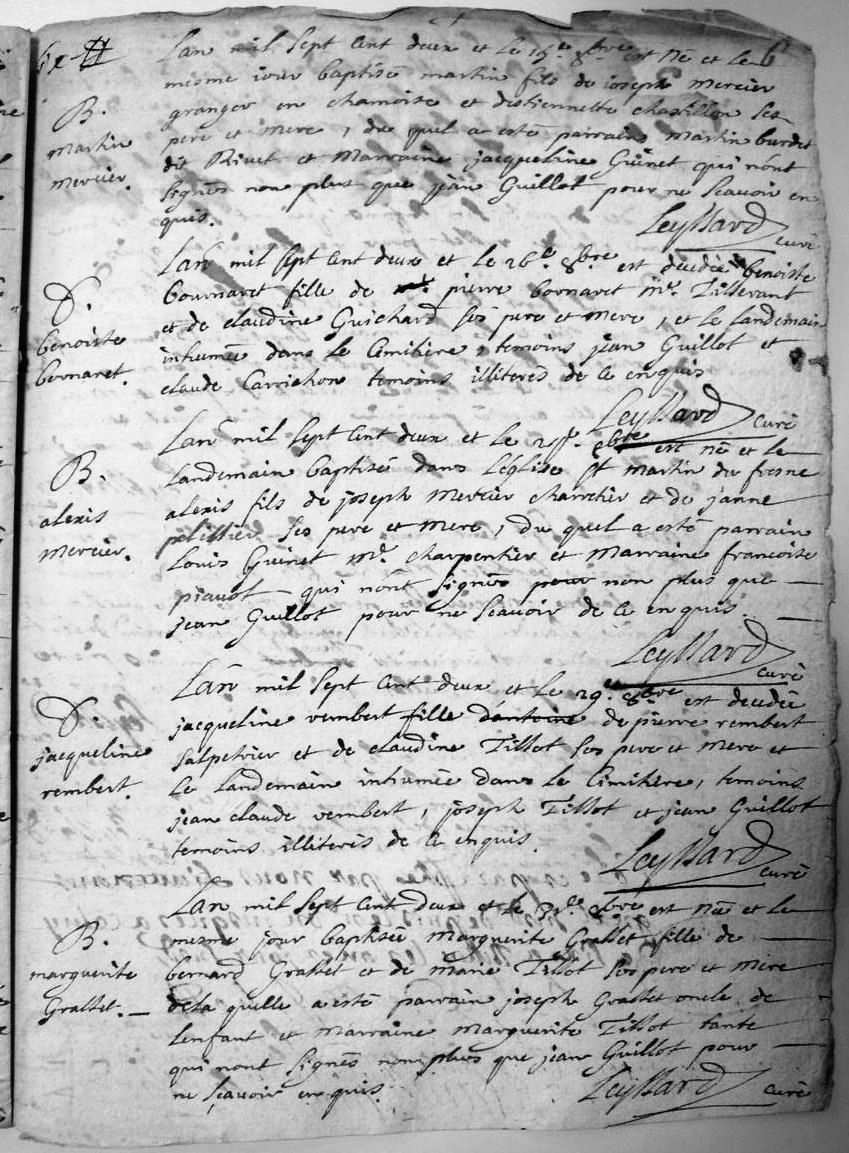 Lan mil sept cent deux et le 15e 8bre est né et le
mesme jour baptisé martin fils de joseph mercier
granger en chamoise et destiennette chastillon ses
pere et mere, du quel a esté parrain Martin burdet
dit Rivet et Marraine jacqueline Guinet qui nont
signés non plus que jean Guillot pour ne scavoir en
quis.
Leyssard curé
B.
martin
mercier.
Lan mil sept cent deux et le 26e 8bre est decedée benoiste
bournaret fille de pierre bornaret mr. Tisserant
et de claudine Guichard ses pere et mere, et le landemain
inhumée dans le Cimitière, temoins jean Guillot et
claude Carrichon temoins illiterés de ce enquis
Leyssard curé
D.
benoiste
bornaret.
Lan mil sept cent deux et le 8bre est né et le
landemain baptisé dans léglise st martin du fresne
alexis fils de joseph Mercier charretier et de janne
pelissier ses pere et mere, du quel a esté parrain
Louis Guinet mr. charpentier et Marraine francoise
piauot qui nont signés pour non plus que
jean Guillot pour ne scavoir de ce enquis.
Leyssard curé
B.
alexis
mercier.
Lan mil sept cent deux et le 29. 8bre est decedée
jacqueline rembert fille dantoine de pierre rembert
salpetrier et de claudine Tillot ses pere et mere et
le landemain inhumée dans le Cimitière, temoins
jean claude rembert, joseph Tillot et jean Guillot
temoins illiterés de ce enquis.
Leyssard curé
D.
jacqueline
rembert.
Lan mil sept cent deux et le 31e 8bre est née et le
mesme jour baptisée Marguerite Grallet fille de
bernard Grallet et de Marie Tillot ses pere et mere
dela quelle a esté parrain joseph Grallet oncle de
lenfant et Marraine Marguerite Tillot tante
qui nont signés non plus que jean Guillot pour
ne scavoir enquis.
Leyssard curé
B.
marguerite
Grallet.